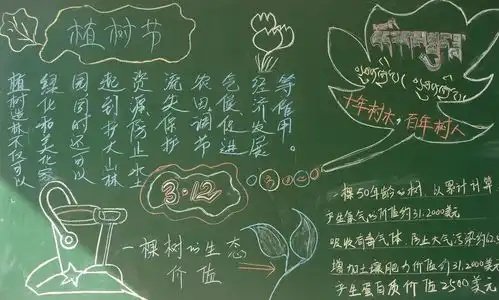 植树节
植树造林不仅可以
绿化和美化家
园同时还可以
起到扩大山林
资源防止水土
流失保护
农田调节
气候促进
经济发展
等作用。
十年树木，百年树人
3·12
一棵树的生态
价值
一棵50年龄的树，以累计计算
产生氧气的价值约31.2000美元
吸收有毒气体，防止大气污染约62.5
增加土壤肥力价值约31.2000美元
产生蛋白质价值2500美元